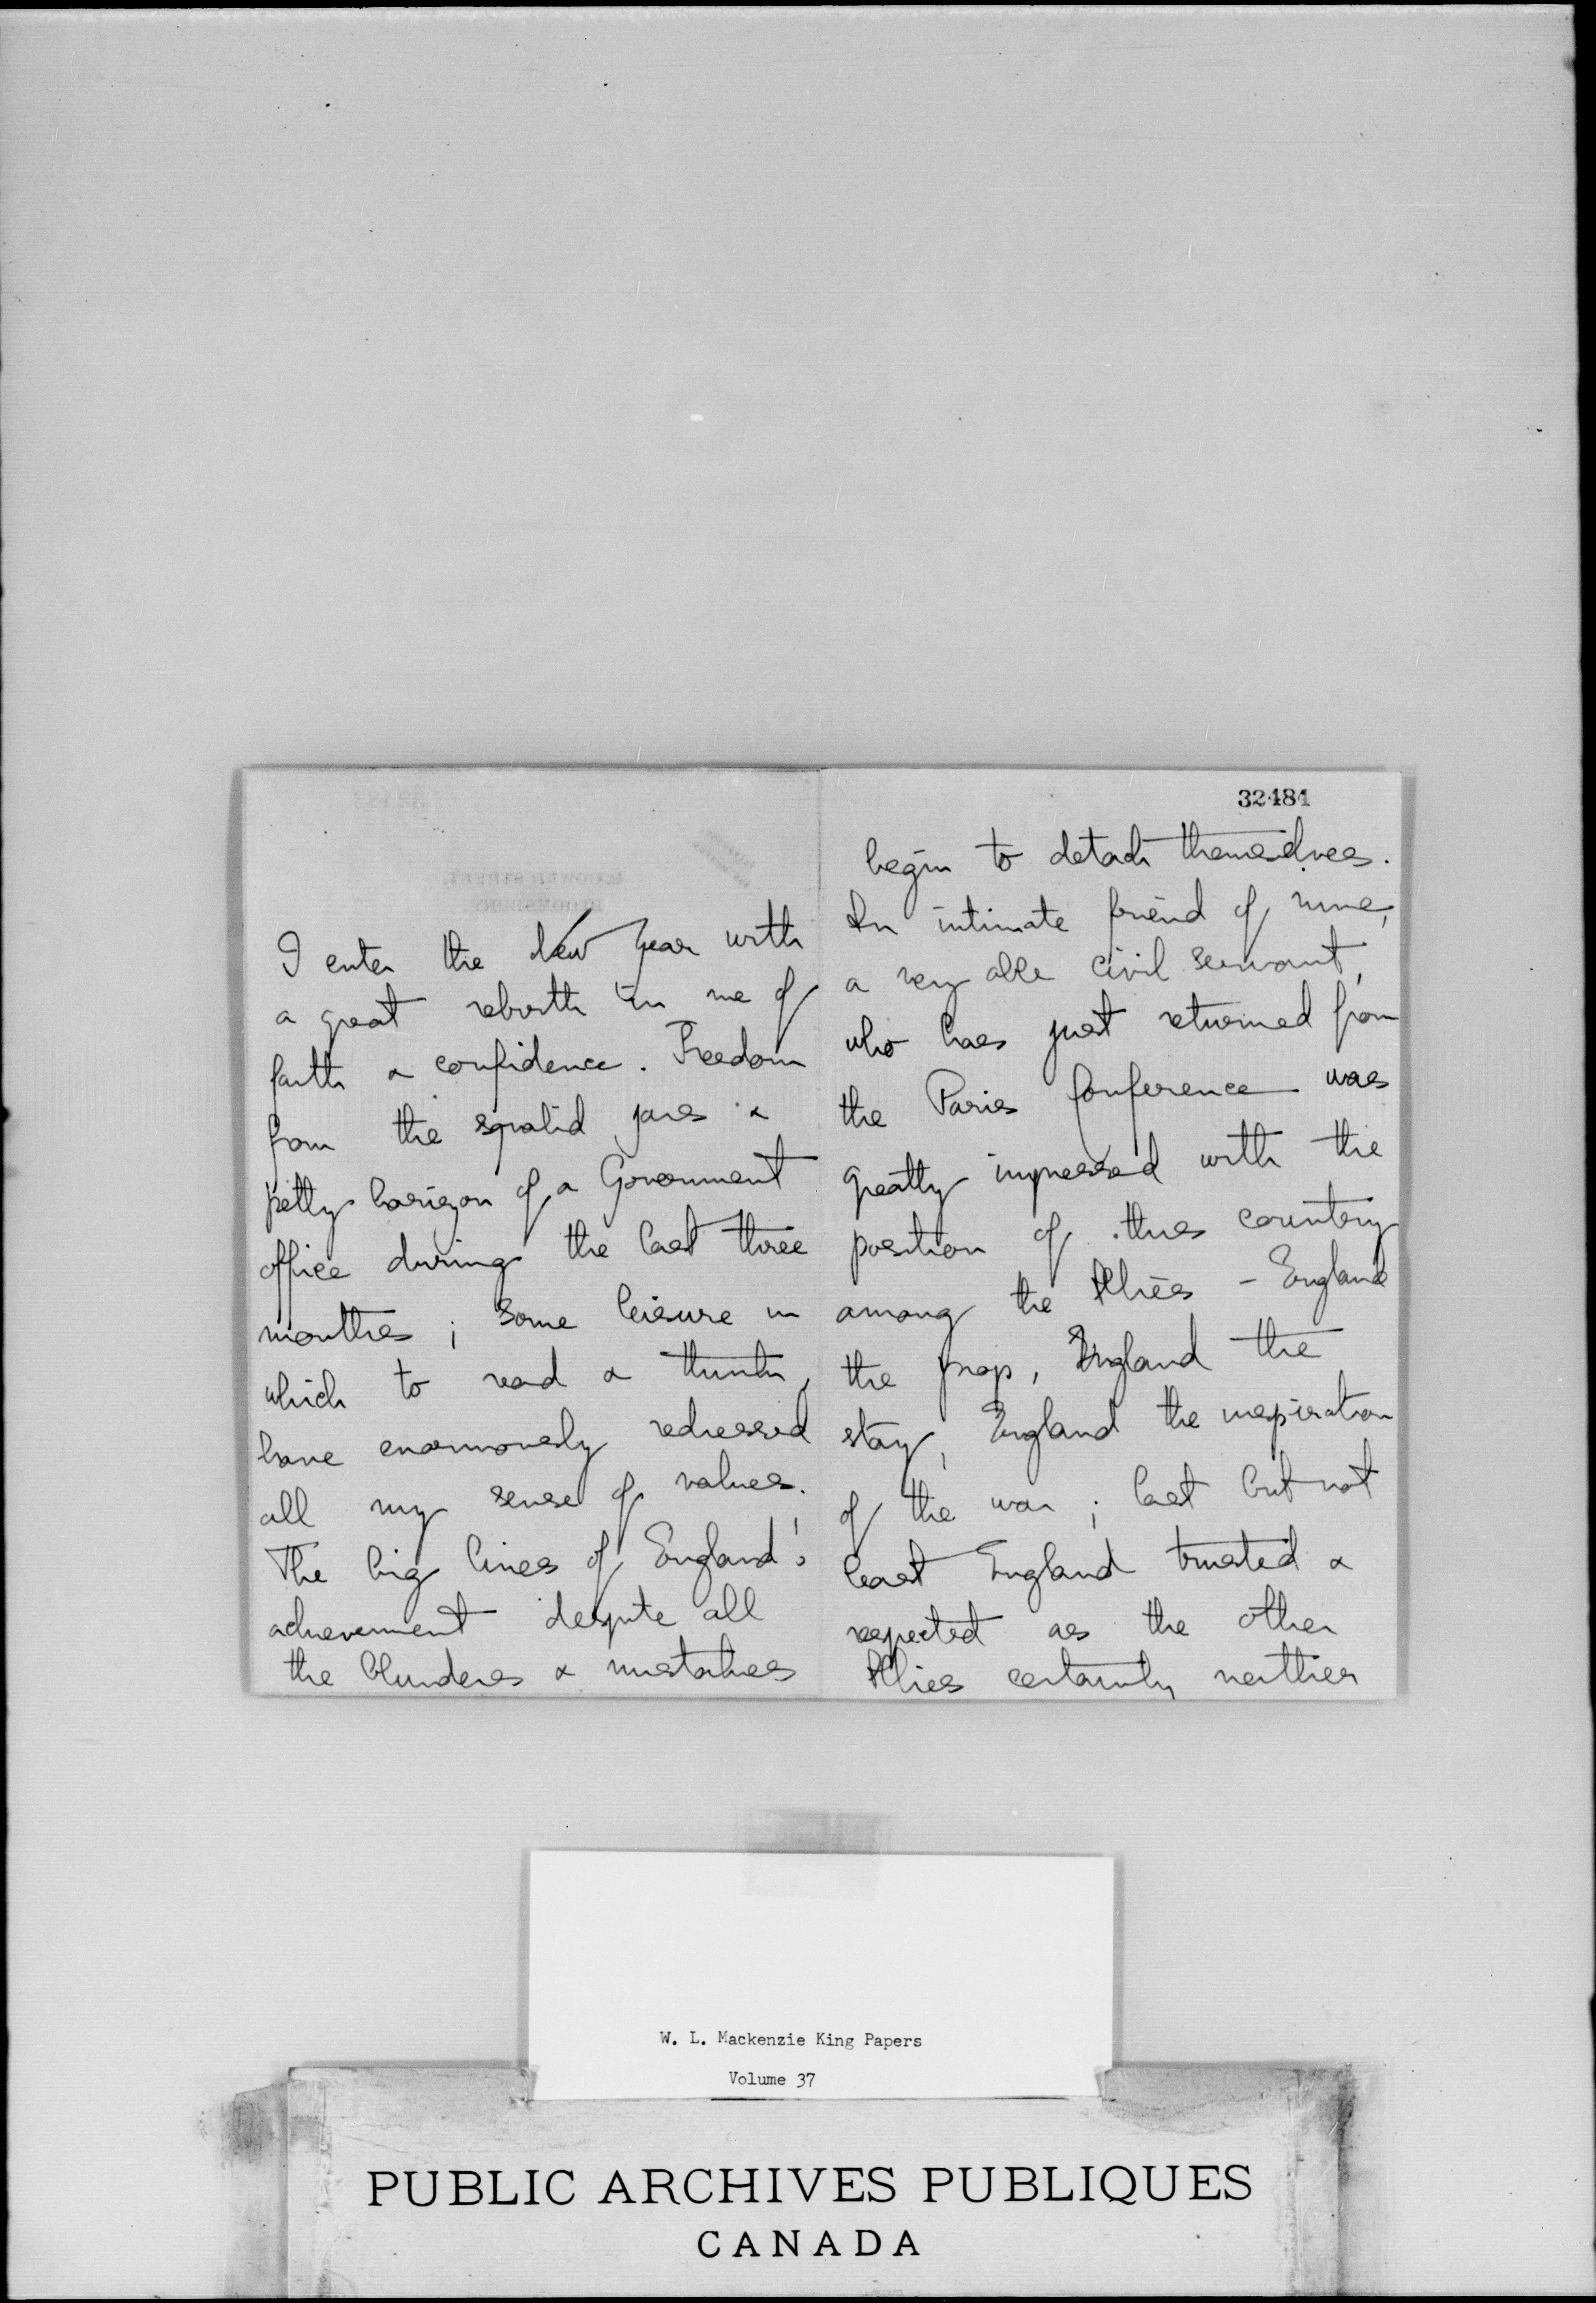 I enter the New Year with
a great rebirth in me of
faith & confidence. Freedom
from the squalid jars &
petty horizon of a Government
office during the last three
months; some leisure in
which to read & think,
have enormously redressed
all my sense of values.
The big lines of England's
achievement despite all
the blunders & mistakes
32484
begin to detach themselves.
An intimate friend of mine,
a very able civil servant,
who has just returned from
the Paris Conference was
greatly impressed with the
position of this country
among the Allies - England
the prop, England the
stay, England the inspiration
of the war; last but not
least England trusted &
respected as the other
Allies certainly neither
W. L. Mackenzie King Papers
Volume 37
PUBLIC ARCHIVES PUBLIQUES
CANADA